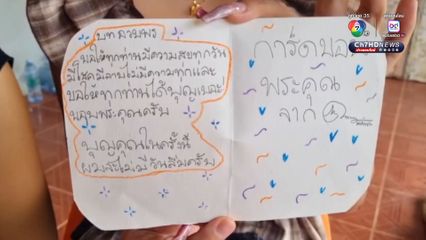 บทอวยพร
ขอให้ทุกท่านมีความสุขทุกวัน
มีโชคมีลาภไม่มีความทุกข์และ
ขอให้ทุกท่านได้บุญเยอะ
ขอบพระคุณครับ
บุญคุณในครั้งนี้
ผมจะไม่มีวันลืมครับ
การ์ดขอบ
พระคุณ
จาก
CH7HDNEWS